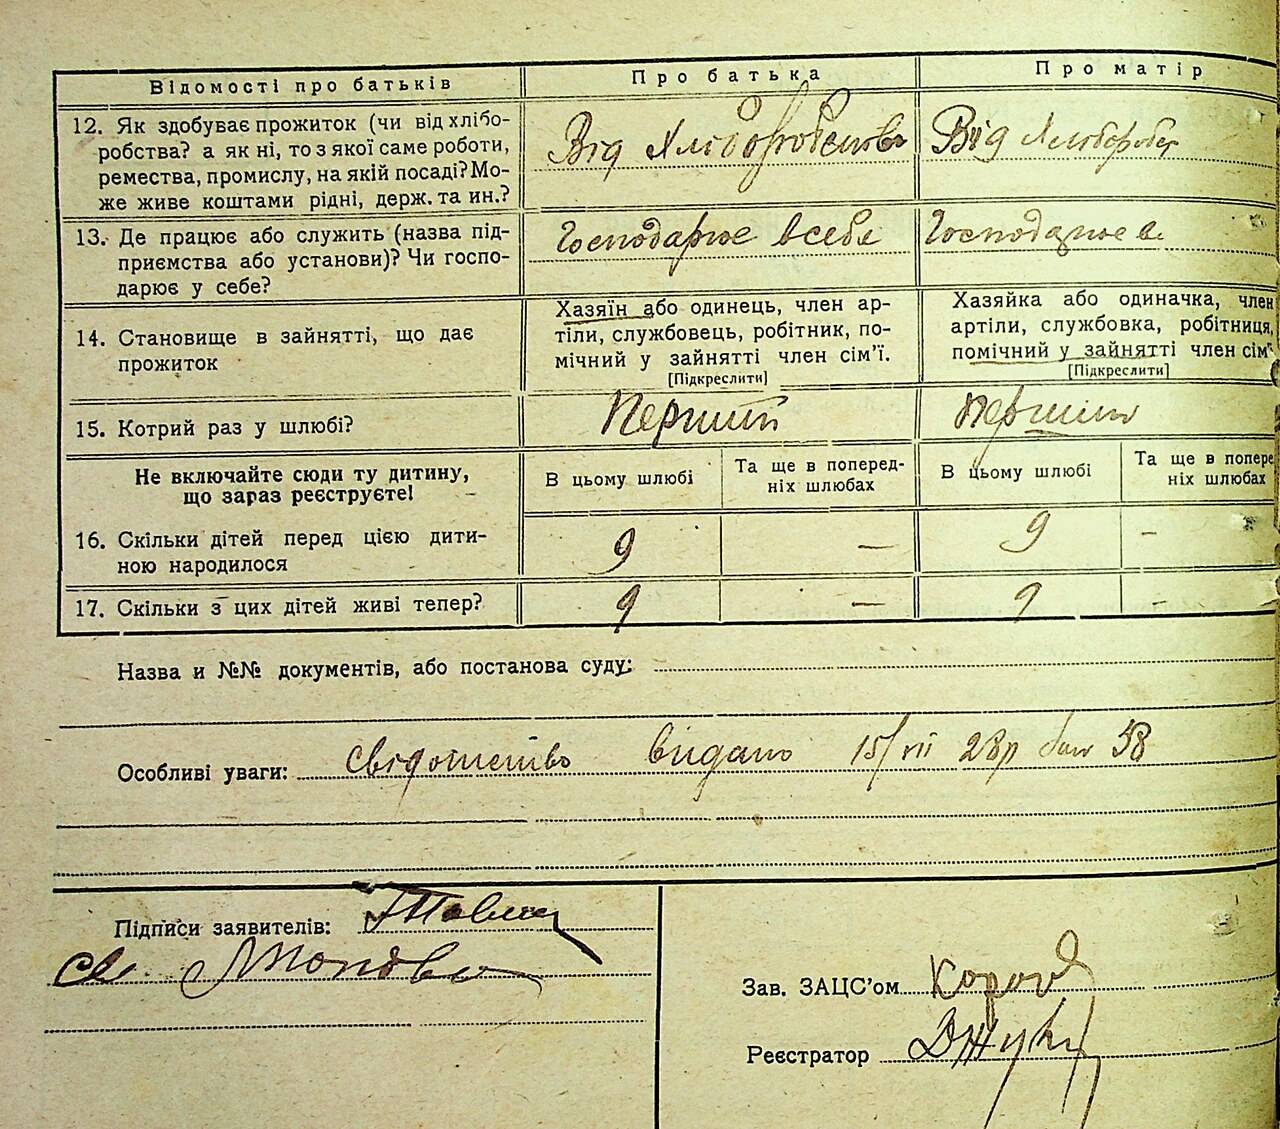 Відомості про батьків
Про батька
Про матір
12. Як здобуває прожиток (чи від хлібо-
робства? а як ні, то з якої саме роботи,
ремества, промислу, на якій посаді? Мо-
же живе коштами рідні, держ. та ин.?
Від хліборобства
Від хлібороб
13. Де працює або служить (назва під-
приємства або установи)? Чи госпо-
дарює у себе?
Господарює в себе
Господарює в
14. Становище в зайнятті, що дає
прожиток
Хазяїн або одинець, член ар-
тіли, службовець, робітник, по-
мічний у зайнятті член сім'ї.
[Підкреслити]
Хазяйка або одиначка, член
артіли, службовка, робітниця,
помічний у зайнятті член сім'
[Підкреслити]
15. Котрий раз у шлюбі?
Перший
Перший
Не включайте сюди ту дитину,
що зараз реєструєте!
В цьому шлюбі
Та ще в поперед-
ніх шлюбах
В цьому шлюбі
Та ще в попере
ніх шлюбах
16. Скільки дітей перед цією дити-
ною народилося
9 — 9 —
17. Скільки з цих дітей живі тепер?
9 — 9 —
Назва и №№ документів, або постанова суду:
Особливі уваги: свідотство видано 15/VII 28р 58
Підписи заявителів:
Зав. ЗАЦС'ом
Реєстратор